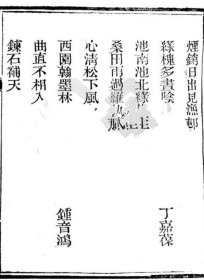 煙銷日出見漁邨
綠槐多晝陰　丁嘉葆
池南池北綠
桑田雨過羅紈
心清松下風
西園翰墨林
曲直不相入　鍾音鴻
鍊石補天